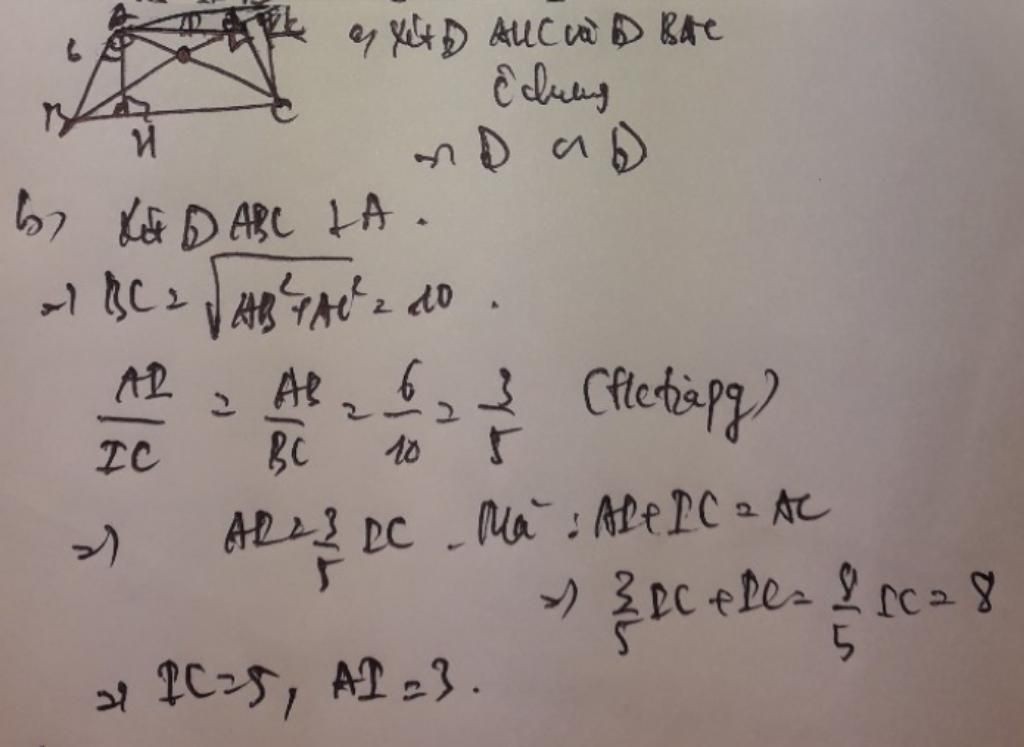 A
6
B
H
C
a, Xét Δ AHC và Δ BAC
Ĉ chung
=> Δ ∽ Δ
b, Xét Δ ABC ⊥ A.
=> BC = √AB² + AC² = 10.
AI/IC = AB/BC = 6/10 = 3/5
=> AI = 3/5 IC. Mà: AI + IC = AC
=> 3/5 IC + IC = 8/5 IC = 8
=> IC = 5, AI = 3.